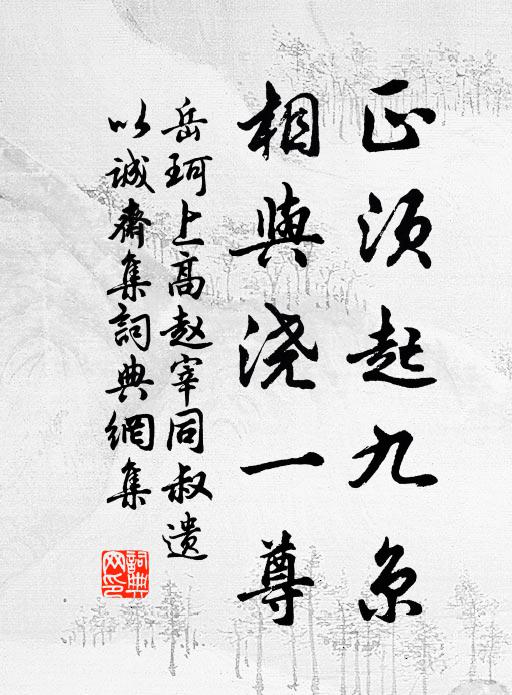 正须起九京
相与浇一尊
岳珂上高赵宰同叔遗
以诚斋集詞典網集
詞典网印